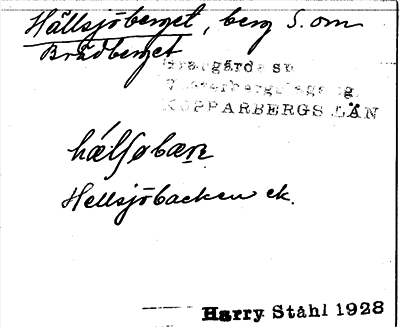 Hällsjöberget, berg S. om
Brädberget
Grangärde sn
Västerbergslags
KOPPARBERGS LÄN
Hellsjöbacken ek.
Harry Ståhl 1928